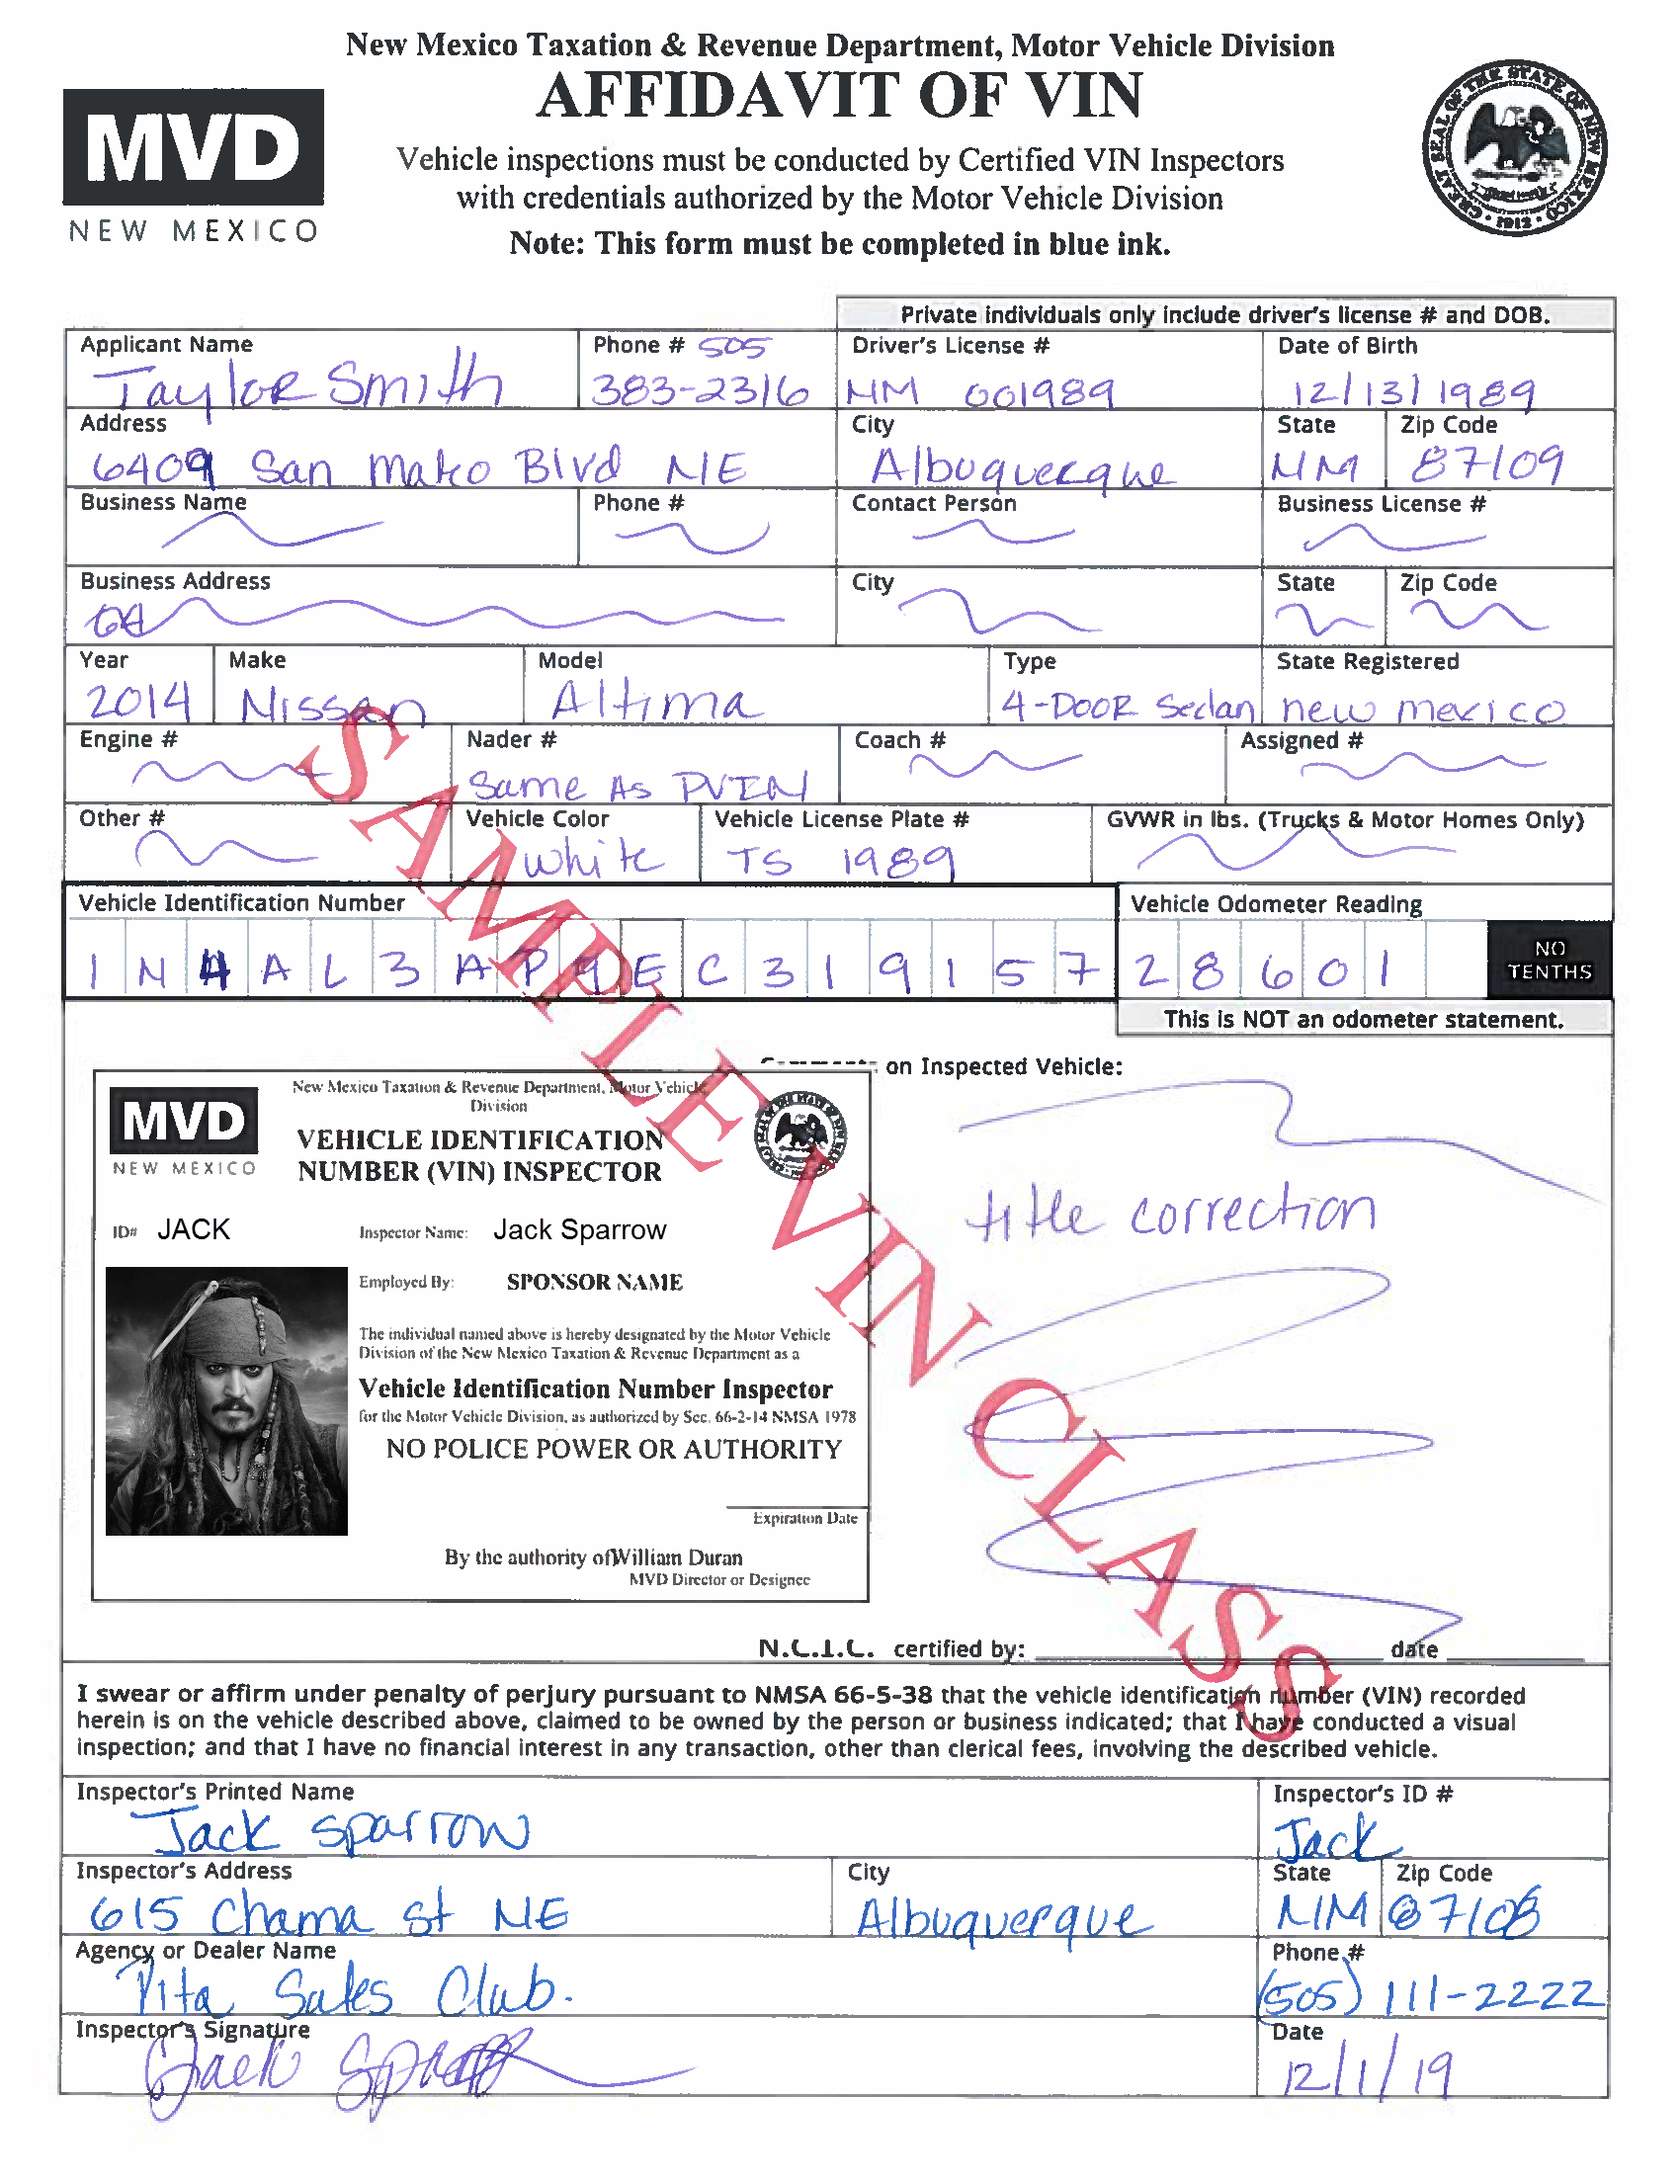 New Mexico Taxation & Revenue Department, Motor Vehicle Division
AFFIDAVIT OF VIN
MVD
NEW MEXICO
Vehicle inspections must be conducted by Certified VIN Inspectors
with credentials authorized by the Motor Vehicle Division
Note: This form must be completed in blue ink.
GREAT SEAL OF THE STATE OF NEW MEXICO
1912
Private individuals only include driver's license # and DOB.
Applicant Name Phone # 505 Driver's License # Date of Birth
Taylor Smith 383-2316 NM 001989 12/13/1989
Address City State Zip Code
6409 San Mateo Blvd NE Albuquerque NM 87109
Business Name Phone # Contact Person Business License #
Business Address City State Zip Code
Year Make Model Type State Registered
2014 Nissan Altima 4-DOOR Sedan new mexico
Engine # Nader # Coach # Assigned #
Same As PVIN
Other # Vehicle Color Vehicle License Plate # GVWR in lbs. (Trucks & Motor Homes Only)
white TS 1989
Vehicle Identification Number Vehicle Odometer Reading
1 N 4 A L 3 A P 9 E C 3 1 9 1 5 7 2 8 6 0 1 NO TENTHS
This is NOT an odometer statement.
on Inspected Vehicle:
New Mexico Taxation & Revenue Department, Motor Vehicle
Division
MVD
NEW MEXICO
VEHICLE IDENTIFICATION
NUMBER (VIN) INSPECTOR
ID# JACK Inspector Name: Jack Sparrow
Employed By: SPONSOR NAME
The individual named above is hereby designated by the Motor Vehicle
Division of the New Mexico Taxation & Revenue Department as a
Vehicle Identification Number Inspector
for the Motor Vehicle Division, as authorized by Sec. 66-2-14 NMSA 1978
NO POLICE POWER OR AUTHORITY
Expiration Date
By the authority of William Duran
MVD Director or Designee
title correction
N.C.I.C. certified by: date
I swear or affirm under penalty of perjury pursuant to NMSA 66-5-38 that the vehicle identification number (VIN) recorded
herein is on the vehicle described above, claimed to be owned by the person or business indicated; that I have conducted a visual
inspection; and that I have no financial interest in any transaction, other than clerical fees, involving the described vehicle.
Inspector's Printed Name Inspector's ID #
Jack Sparrow Jack
Inspector's Address City State Zip Code
615 Chama St NE Albuquerque NM 87108
Agency or Dealer Name Phone #
Pita Sales Club. (505) 111-2222
Inspector's Signature Date
Jack Sparrow 12/1/19
SAMPLE VIN CLASS